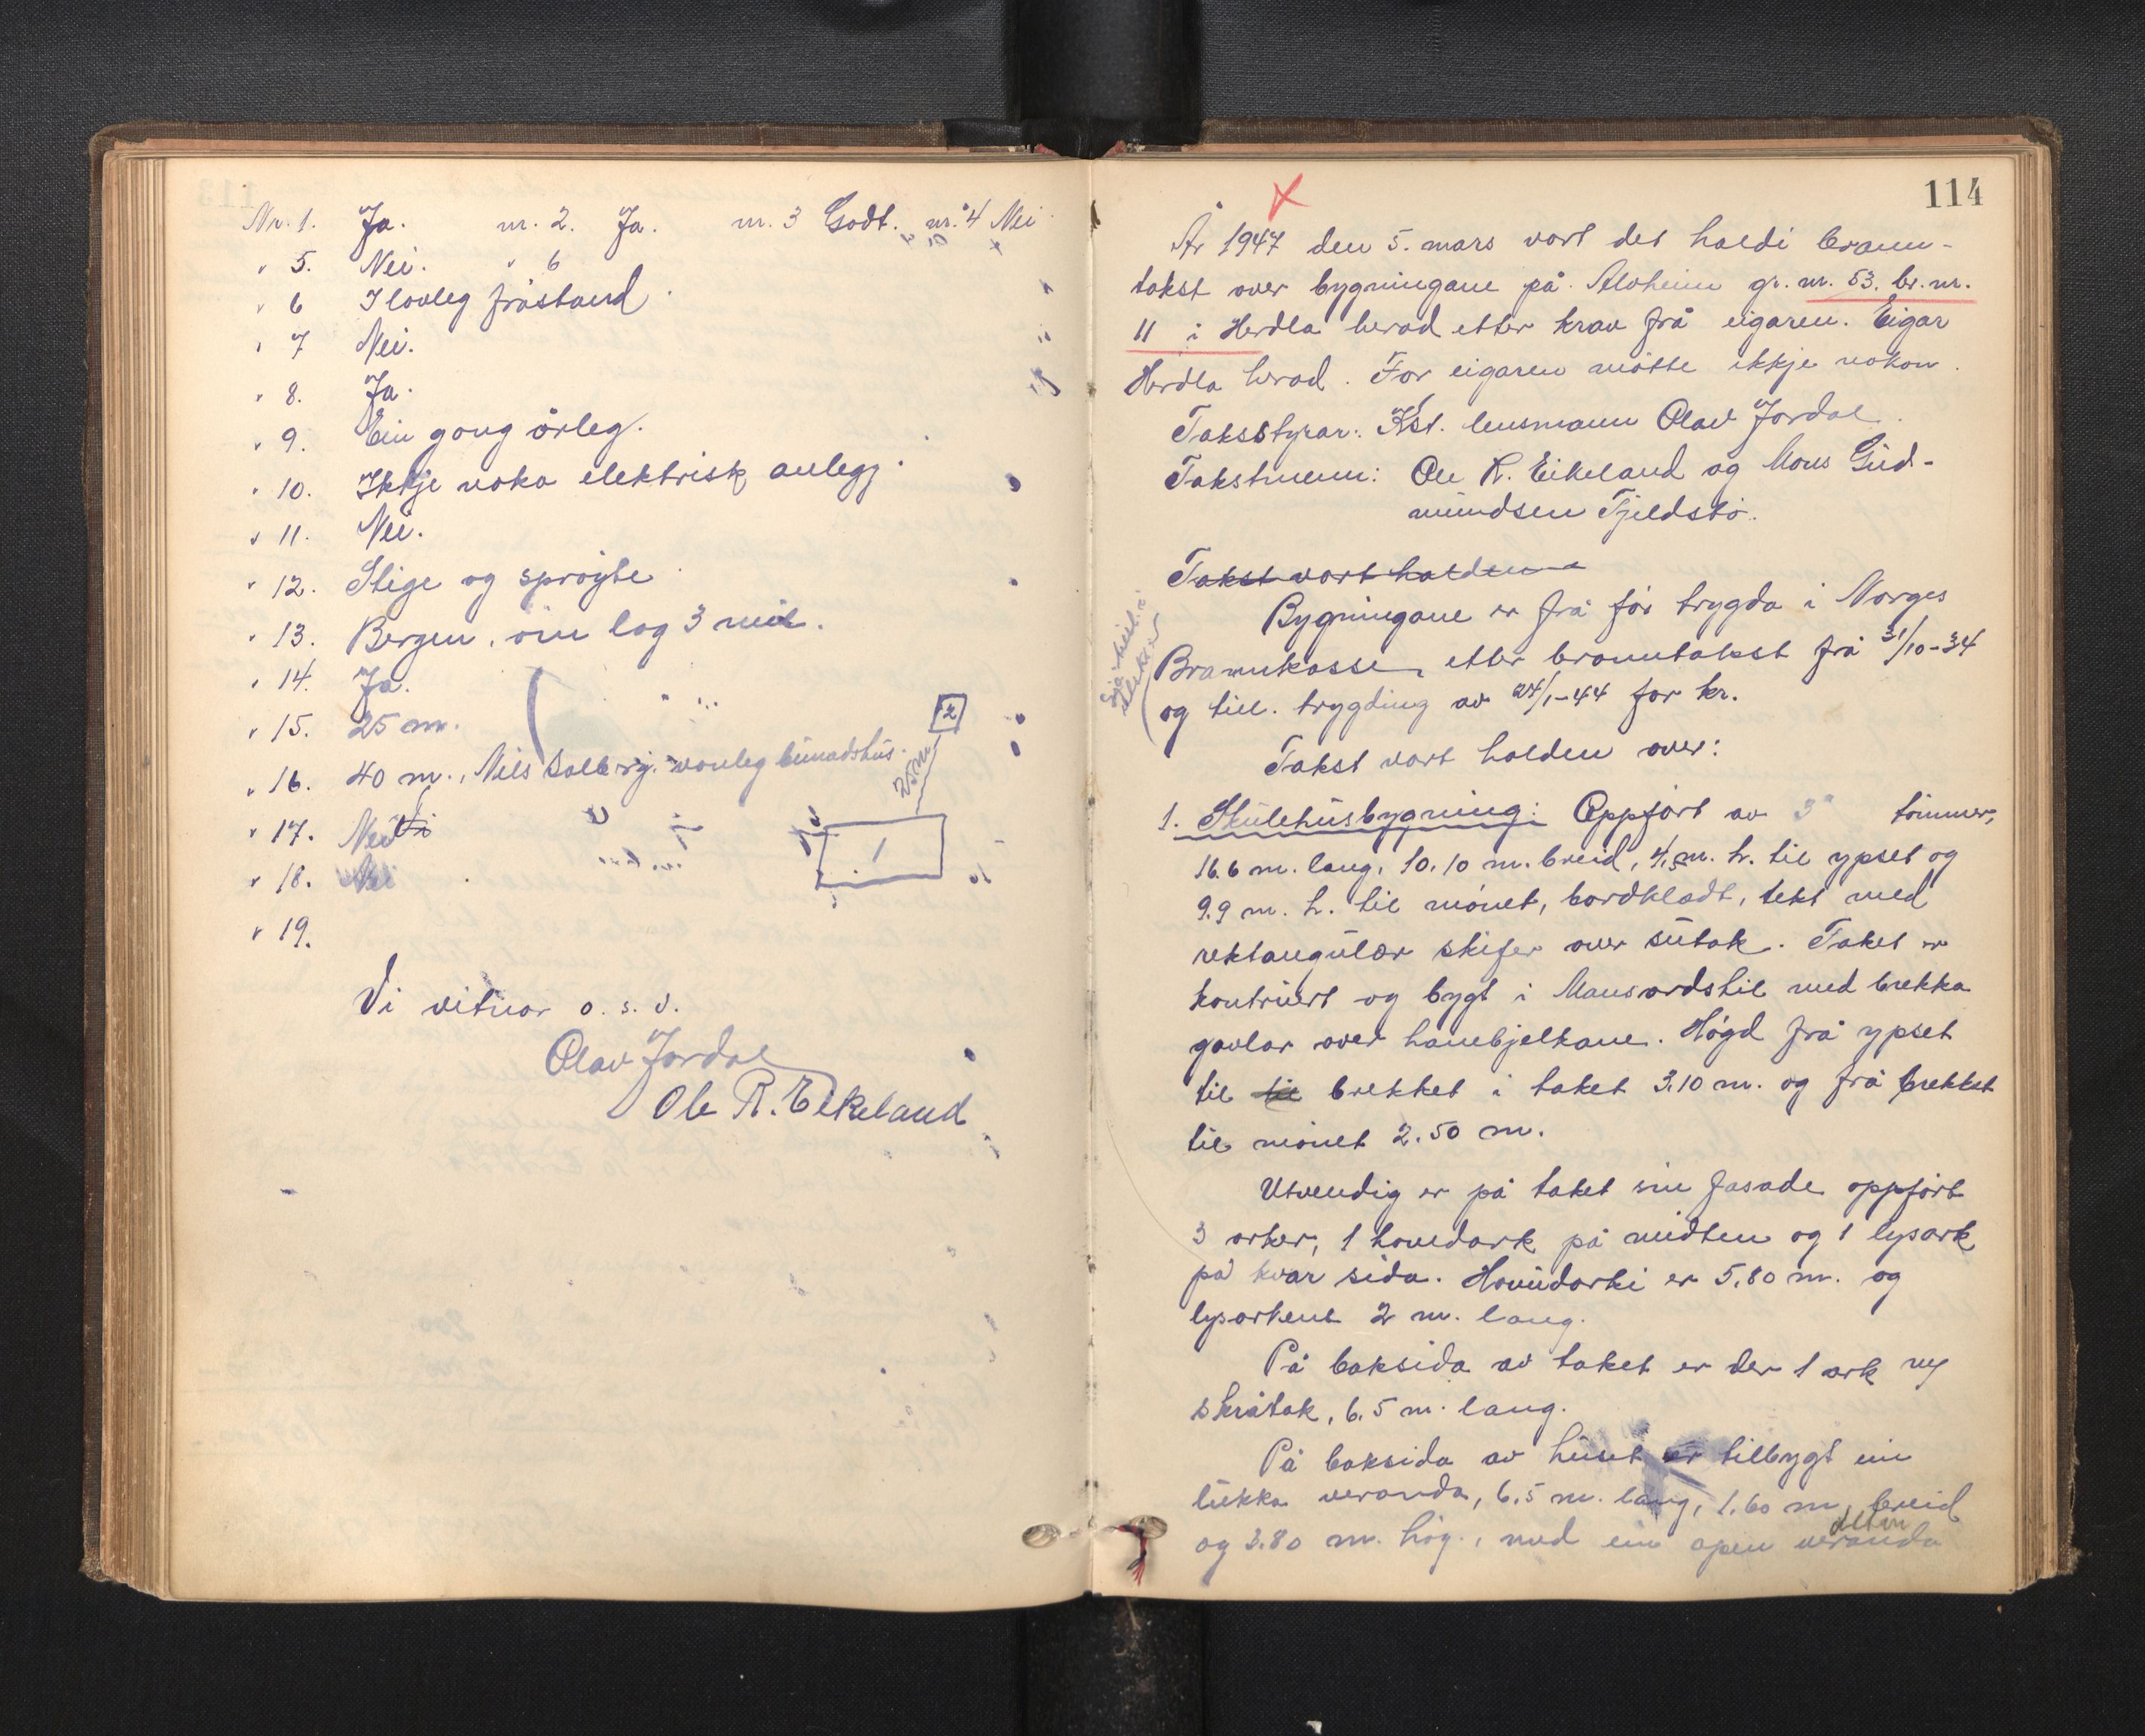 Nr. 1. Ja. nr. 2. Ja. nr. 3 Godt. nr. 4 Nei
" 5. Nei. " 6
" 6 I lovleg fråstand.
" 7 Nei.
" 8. Ja.
" 9. Ein gong årleg.
" 10. Ikkje noko elektrisk anlegg.
" 11. Nei.
" 12. Stige og sprøyte
" 13. Bergen, om lag 3 mil.
" 14. Ja.
" 15. 25 m.
" 16. 40 m., Nils Solberg. vanleg bunadshus.
" 17. Nei
" 18. Nei
" 19.
2
25 m
1
Vi vitnar o. s. v.
Olav Jordal
Ole R. Eikeland
114
År 1947 den 5. mars vart det haldi brann-
takst over bygningane på Alvheim gr. nr. 53. br. nr.
11 i Herdla herad etter krav frå eigaren. Eigar
Herdla herad. For eigaren møtte ikkje nokon.
Taksstyrar: Kst. lensmann Olav Jordal.
Takstmenn: Ole R. Eikeland og Mons Gud-
mundsen Fjeldstø.
Takst vart halden
Bygningane er frå før trygda i Norges
Brannkasse, etter branntakst frå 31/10-34
og till. trygding av 24/1-44 for kr.
Takst vart halden over:
1. Skulehusbygning: Oppført av 3" tømmer,
16.6 m. lang, 10.10 m. breid, 4,5 m. h. til ypset og
9.9 m. h. til mønet, bordkledt, tekt med
rektangulær skifer over sutak. Taket er
kontruert og bygt i Mansardstil med brekka
gavlar over hanebjelkane. Høgd frå ypset
til til brekket i taket 3.10 m. og frå brekket
til mønet 2.50 m.
Utvendig er på taket sin fasade oppført
3 arker, 1 hovedark på midten og 1 lysark
på kvar sida. Hovudarki er 5.80 m. og
lysarkene 2 m. lang.
På baksida av taket er der 1 ark m/
skråtak, 6.5 m. lang.
På baksida av huset er tilbygt ein
lukka veranda, 6.5 m. lang, 1.60 m. breid
og 3.80 m. høg., med ein open veranda